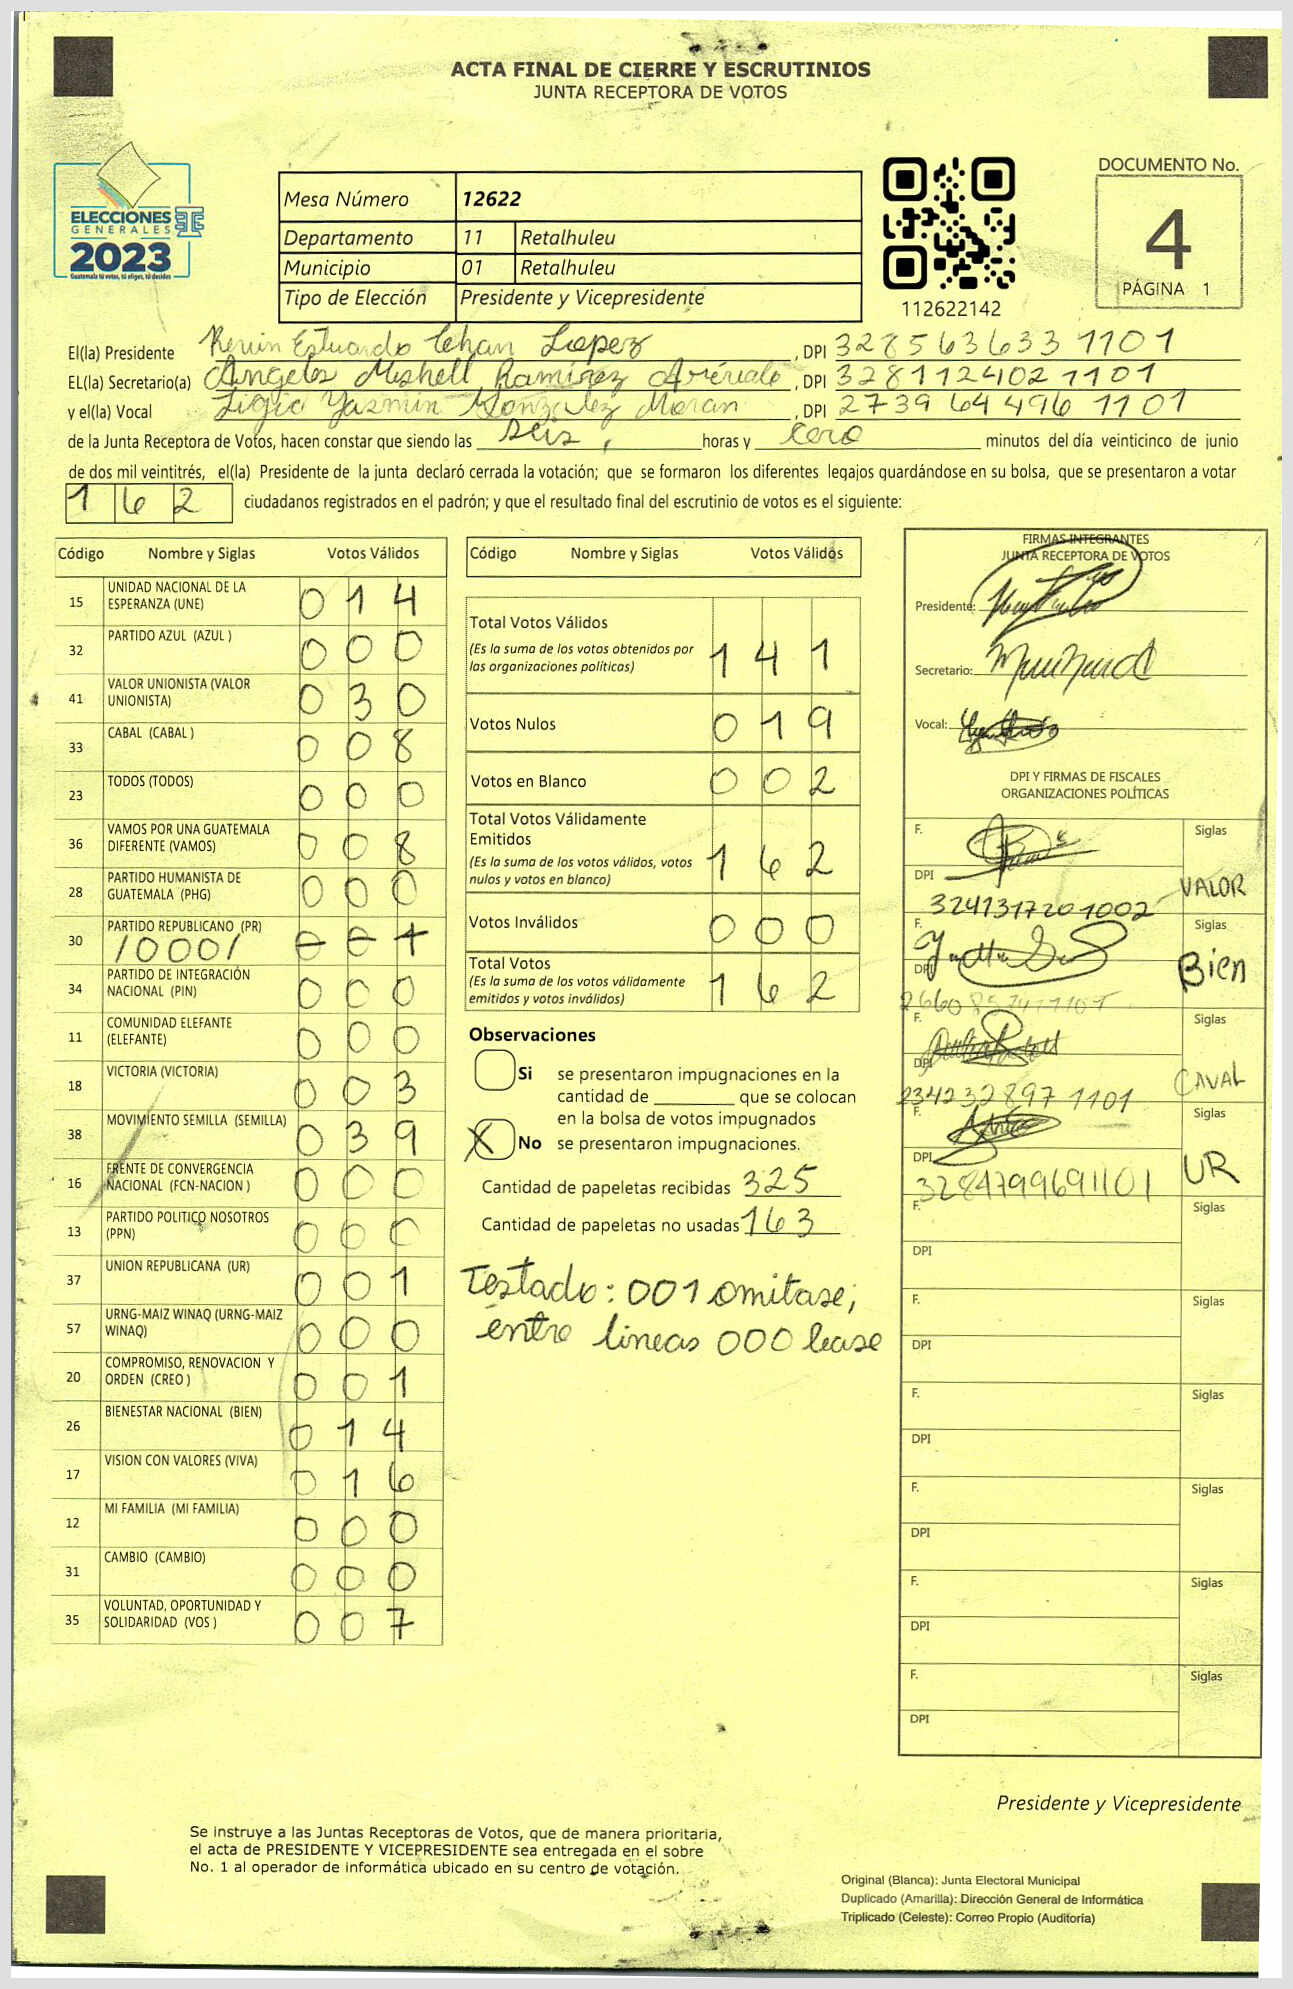 ACTA FINAL DE CIERRE Y ESCRUTINIOS
JUNTA RECEPTORA DE VOTOS
ELECCIONES
GENERALES
2023
Guatemala tú votas, tú eliges, tú decides
Mesa Número 12622
Departamento 11 Retalhuleu
Municipio 01 Retalhuleu
Tipo de Elección Presidente y Vicepresidente
112622142
DOCUMENTO No.
4
PÁGINA 1
El(la) Presidente Kevin Estuardo Chan Lopez, DPI 328563633 1101
EL(la) Secretario(a) Angeles Mishell Ramírez Arévalo, DPI 328112402 1101
y el(la) Vocal Ligia Yazmin Gonzalez Moran, DPI 2739 64 496 1101
de la Junta Receptora de Votos, hacen constar que siendo las seis, horas y cero minutos del día veinticinco de junio
de dos mil veintitrés, el(la) Presidente de la junta declaró cerrada la votación; que se formaron los diferentes legajos quardándose en su bolsa, que se presentaron a votar
162 ciudadanos registrados en el padrón; y que el resultado final del escrutinio de votos es el siguiente:
Código Nombre y Siglas Votos Válidos
15 UNIDAD NACIONAL DE LA ESPERANZA (UNE) 014
32 PARTIDO AZUL (AZUL ) 000
41 VALOR UNIONISTA (VALOR UNIONISTA) 030
33 CABAL (CABAL ) 008
23 TODOS (TODOS) 000
36 VAMOS POR UNA GUATEMALA DIFERENTE (VAMOS) 008
28 PARTIDO HUMANISTA DE GUATEMALA (PHG) 000
30 PARTIDO REPUBLICANO (PR) /000/ 001
34 PARTIDO DE INTEGRACIÓN NACIONAL (PIN) 000
11 COMUNIDAD ELEFANTE (ELEFANTE) 000
18 VICTORIA (VICTORIA) 003
38 MOVIMIENTO SEMILLA (SEMILLA) 039
16 FRENTE DE CONVERGENCIA NACIONAL (FCN-NACION ) 000
13 PARTIDO POLITICO NOSOTROS (PPN) 000
37 UNION REPUBLICANA (UR) 001
57 URNG-MAIZ WINAQ (URNG-MAIZ WINAQ) 000
20 COMPROMISO, RENOVACION Y ORDEN (CREO ) 001
26 BIENESTAR NACIONAL (BIEN) 014
17 VISION CON VALORES (VIVA) 016
12 MI FAMILIA (MI FAMILIA) 000
31 CAMBIO (CAMBIO) 000
35 VOLUNTAD, OPORTUNIDAD Y SOLIDARIDAD (VOS ) 007
Código Nombre y Siglas Votos Válidos
Total Votos Válidos
(Es la suma de los votos obtenidos por
las organizaciones políticas) 141
Votos Nulos 019
Votos en Blanco 002
Total Votos Válidamente
Emitidos
(Es la suma de los votos válidos, votos
nulos y votos en blanco) 162
Votos Inválidos 000
Total Votos
(Es la suma de los votos válidamente
emitidos y votos inválidos) 162
Observaciones
Si se presentaron impugnaciones en la
cantidad de ________ que se colocan
en la bolsa de votos impugnados
X No se presentaron impugnaciones.
Cantidad de papeletas recibidas 325
Cantidad de papeletas no usadas 163
Testado: 001 omitase;
entre lineas 000 lease
FIRMAS INTEGRANTES
JUNTA RECEPTORA DE VOTOS
Presidente:
Secretario:
Vocal:
DPI Y FIRMAS DE FISCALES
ORGANIZACIONES POLÍTICAS
F. Siglas
DPI VALOR
3241317201002
F. Siglas
DPI Bien
F. Siglas
DPI CAVAL
234232897 1101
F. Siglas
DPI UR
3284799691101
F. Siglas
DPI
F. Siglas
DPI
F. Siglas
DPI
F. Siglas
DPI
F. Siglas
DPI
F. Siglas
DPI
Presidente y Vicepresidente
Se instruye a las Juntas Receptoras de Votos, que de manera prioritaria,
el acta de PRESIDENTE Y VICEPRESIDENTE sea entregada en el sobre
No. 1 al operador de informática ubicado en su centro de votación.
Original (Blanca): Junta Electoral Municipal
Duplicado (Amarilla): Dirección General de Informática
Triplicado (Celeste): Correo Propio (Auditoría)